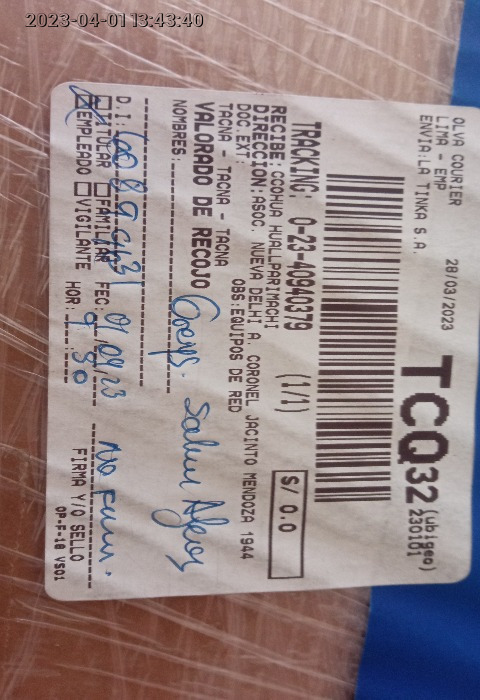 2023-04-01 13:43:40
OLVA COURIER
LIMA - EMP
ENVIA:LA TINKA S.A.
28/03/2023
TCQ32
(ubigeo)
230101
TRACKING: 0-23-40940379 (1/1)
S/ 0.0
RECIBE: CCOHUA HUALLPARIMACHI
DIRECCION:ASOC. NUEVA DELHI A. CORONEL JACINTO MENDOZA 1944
DOC.EXT: OBS:EQUIPOS DE RED
TACNA - TACNA - TACNA
VALORADO DE RECOJO
NOMBRES:
D.I:
TITULAR FAMILIAR FEC:
EMPLEADO VIGILANTE HOR: 9:30
FIRMA Y/O SELLO
OP-F-18 VS01